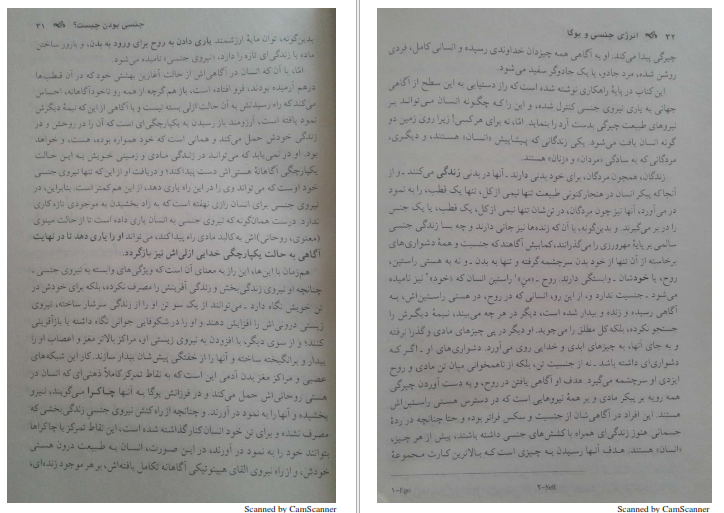 جنسی بودن چیست؟ ۳۱
بدین‌گونه، توان مایهٔ ارزشمند یاری دادن به روح برای ورود به بدن، و بارور ساختن
ماده با زندگی‌ای تازه را دارد، «نیروی جنسی» نامیده می‌شود.
امّا، با آن که انسان در آگاهی‌اش از حالت آغازین بهشتی خود که در آن قطب‌ها
درهم آرمیده بودند، فرو افتاده است، باز هم گرچه از همه رو ناخودآگاهانه، احساس
می‌کند که راه رسیدنش به آن حالت ازلی بسته نیست و با آگاهی از این که نیمهٔ دیگرش
نمود یافته است، آرزومند باز رسیدن به یکپارچگی‌ای است که آن را در روحش و در
زندگی خودش حمل می‌کند و همانی است که خود همواره بوده، هست، و خواهد
بود. او در نمی‌یابد که می‌تواند در زندگی مادی و زمینی خویش به این حالت
یکپارچگی آگاهانهٔ هستی‌اش دست پیدا کند؛ و دریافت او از این که تنها نیروی جنسی
خود اوست که می‌تواند وی را در این راه یاری دهد، از این هم کمتر است. بنابراین، در
نیروی جنسی برای انسان رازی نهفته است که به زاد بخشیدن به موجودی تازه کاری
ندارد. درست همان‌گونه که نیروی جنسی به انسان یاری داده است تا از حالت مینوی
(معنوی، روحانی)اش به کالبد مادی راه پیدا کند، می‌تواند او را یاری دهد تا در نهایت
آگاهی به حالت یکپارچگی خدایی ازلی‌اش نیز بازگردد.
هم‌زمان با این‌ها، این راز به معنای آن است که ویژگی‌های وابسته به نیروی جنسی ـ
چنانچه او نیروی زندگی‌بخش و زندگی آفرینش را مصرف نکرده، بلکه برای خودش در
تن خویش نگاه دارد ـ می‌توانند از یک سو تن او را از زندگی سرشار ساخته، نیروی
زیستی درونی‌اش را افزایش دهند و او را در شکوفایی جوانی نگاه داشته یا بازآفرینی
کنند؛ و از سوی دیگر، با افزودن به نیروی زیستی او، مراکز بالاتر مغز و اعصاب او را
بیدار و برانگیخته ساخته و آنها را از خفتگی پیش‌شان بیدار سازند. کار این شبکه‌های
عصبی و مراکز مغز بدن آدمی این است که به نقاط تمرکز کاملاً ذهنی‌ای که انسان در
هستی روحانی‌اش حمل می‌کند و در فرزانش یوگا به آنها چاکرا می‌گویند، نیرو
بخشیده و آنها را به نمود در آورند. و چنانچه از راه کنش نیروی جنسی زندگی‌بخشی که
مصرف نشده و برای تن خود انسان کنار گذاشته شده است، این نقاط تمرکز یا چاکراها
بتوانند خود را به نمود در آورند، در این صورت، انسان به طبیعت درون هستی
خودش، و از راه نیروی القای هیپنوتیکی آگاهانه تکامل یافته‌اش، بر هر موجود زنده‌ای،
Scanned by CamScanner
۳۲ انرژی جنسی و یوگا
چیرگی پیدا می‌کند. او به آگاهی همه چیزدان خداوندی رسیده و انسانی کامل، فردی
روشن شده، مرد جادو، یا یک جادوگر سفید می‌شود.
این کتاب در پایهٔ راهکاری نوشته شده است که راز دستیابی به این سطح از آگاهی
جهانی به یاری نیروی جنسی کنترل شده، و این را که چگونه انسان می‌تواند بر
نیروهای طبیعت چیرگی بدست آرد را بنماید. امّا، نه برای هرکسی! زیرا روی زمین دو
گونه انسان یافت می‌شود. یکی زندگانی که پیشاپیش «انسان» هستند، و دیگری،
مردگانی که به سادگی «مردان» و «زنان» هستند.
زندگان، همچون مردگان، برای خود بدنی دارند ـ آنها در بدنی زندگی می‌کنند ـ و از
آنجا که پیکر انسان در هنجار کنونی طبیعت تنها نیمی از کل، تنها یک قطب، را به نمود
در می‌آورد، آنها نیز چون مردگان، در تن‌شان تنها نیمی از کل، یک قطب، یا یک جنس
را در بر می‌گیرند. و بدین‌گونه، با آن که زنده‌ها نیز جانی دارند و چه بسا زندگی جنسی
سالمی بر پایهٔ مهرورزی را می‌گذرانند، کمابیش آگاهند که جنسیت و همهٔ دشواری‌های
برخاسته از آن تنها از خود بدن سرچشمه گرفته و تنها به بدن ـ و نه به هستی راستین،
روح، یا خودشان ـ وابستگی دارند. روح ـ «من»۱ راستین انسان که «خود»۲ نیز نامیده
می‌شود ـ جنسیت ندارد و، از این رو، انسانی که در روح، در هستی راستین‌اش، به
آگاهی رسیده و زنده و بیدار شده است، دیگر در هر چه می‌بیند، نیمهٔ دیگرش را
جستجو نکرده، بلکه کل مطلق را می‌جوید. او دیگر در پی چیزهای مادی و گذرا نرفته
و به جای آنها، به چیزهای ابدی و خدایی روی می‌آورد. دشواری‌های او ـ اگر که
دشواری‌ای داشته باشد ـ نه از جنسیت تن، بلکه از ناهمخوانی میان تن مادی و روح
ایزدی او سرچشمه می‌گیرد. هدف او آگاهی یافتن در روح، و به دست آوردن چیرگی
همه رویه بر پیکر مادی و بر همهٔ نیروهایی است که در دسترس هستی راستین‌اش
هستند. این افراد در آگاهی‌شان از جنسیت و سکس فراتر بوده و حتا چنانچه در ردهٔ
جسمانی هنوز زندگی‌ای همراه با کشش‌های جنسی داشته باشند، پیش از هر چیز،
«انسان» هستند. هدف آنها رسیدن به چیزی است که بالاترین کارت مجموعهٔ
۱-Ego ۲-Self
Scanned by CamScanner